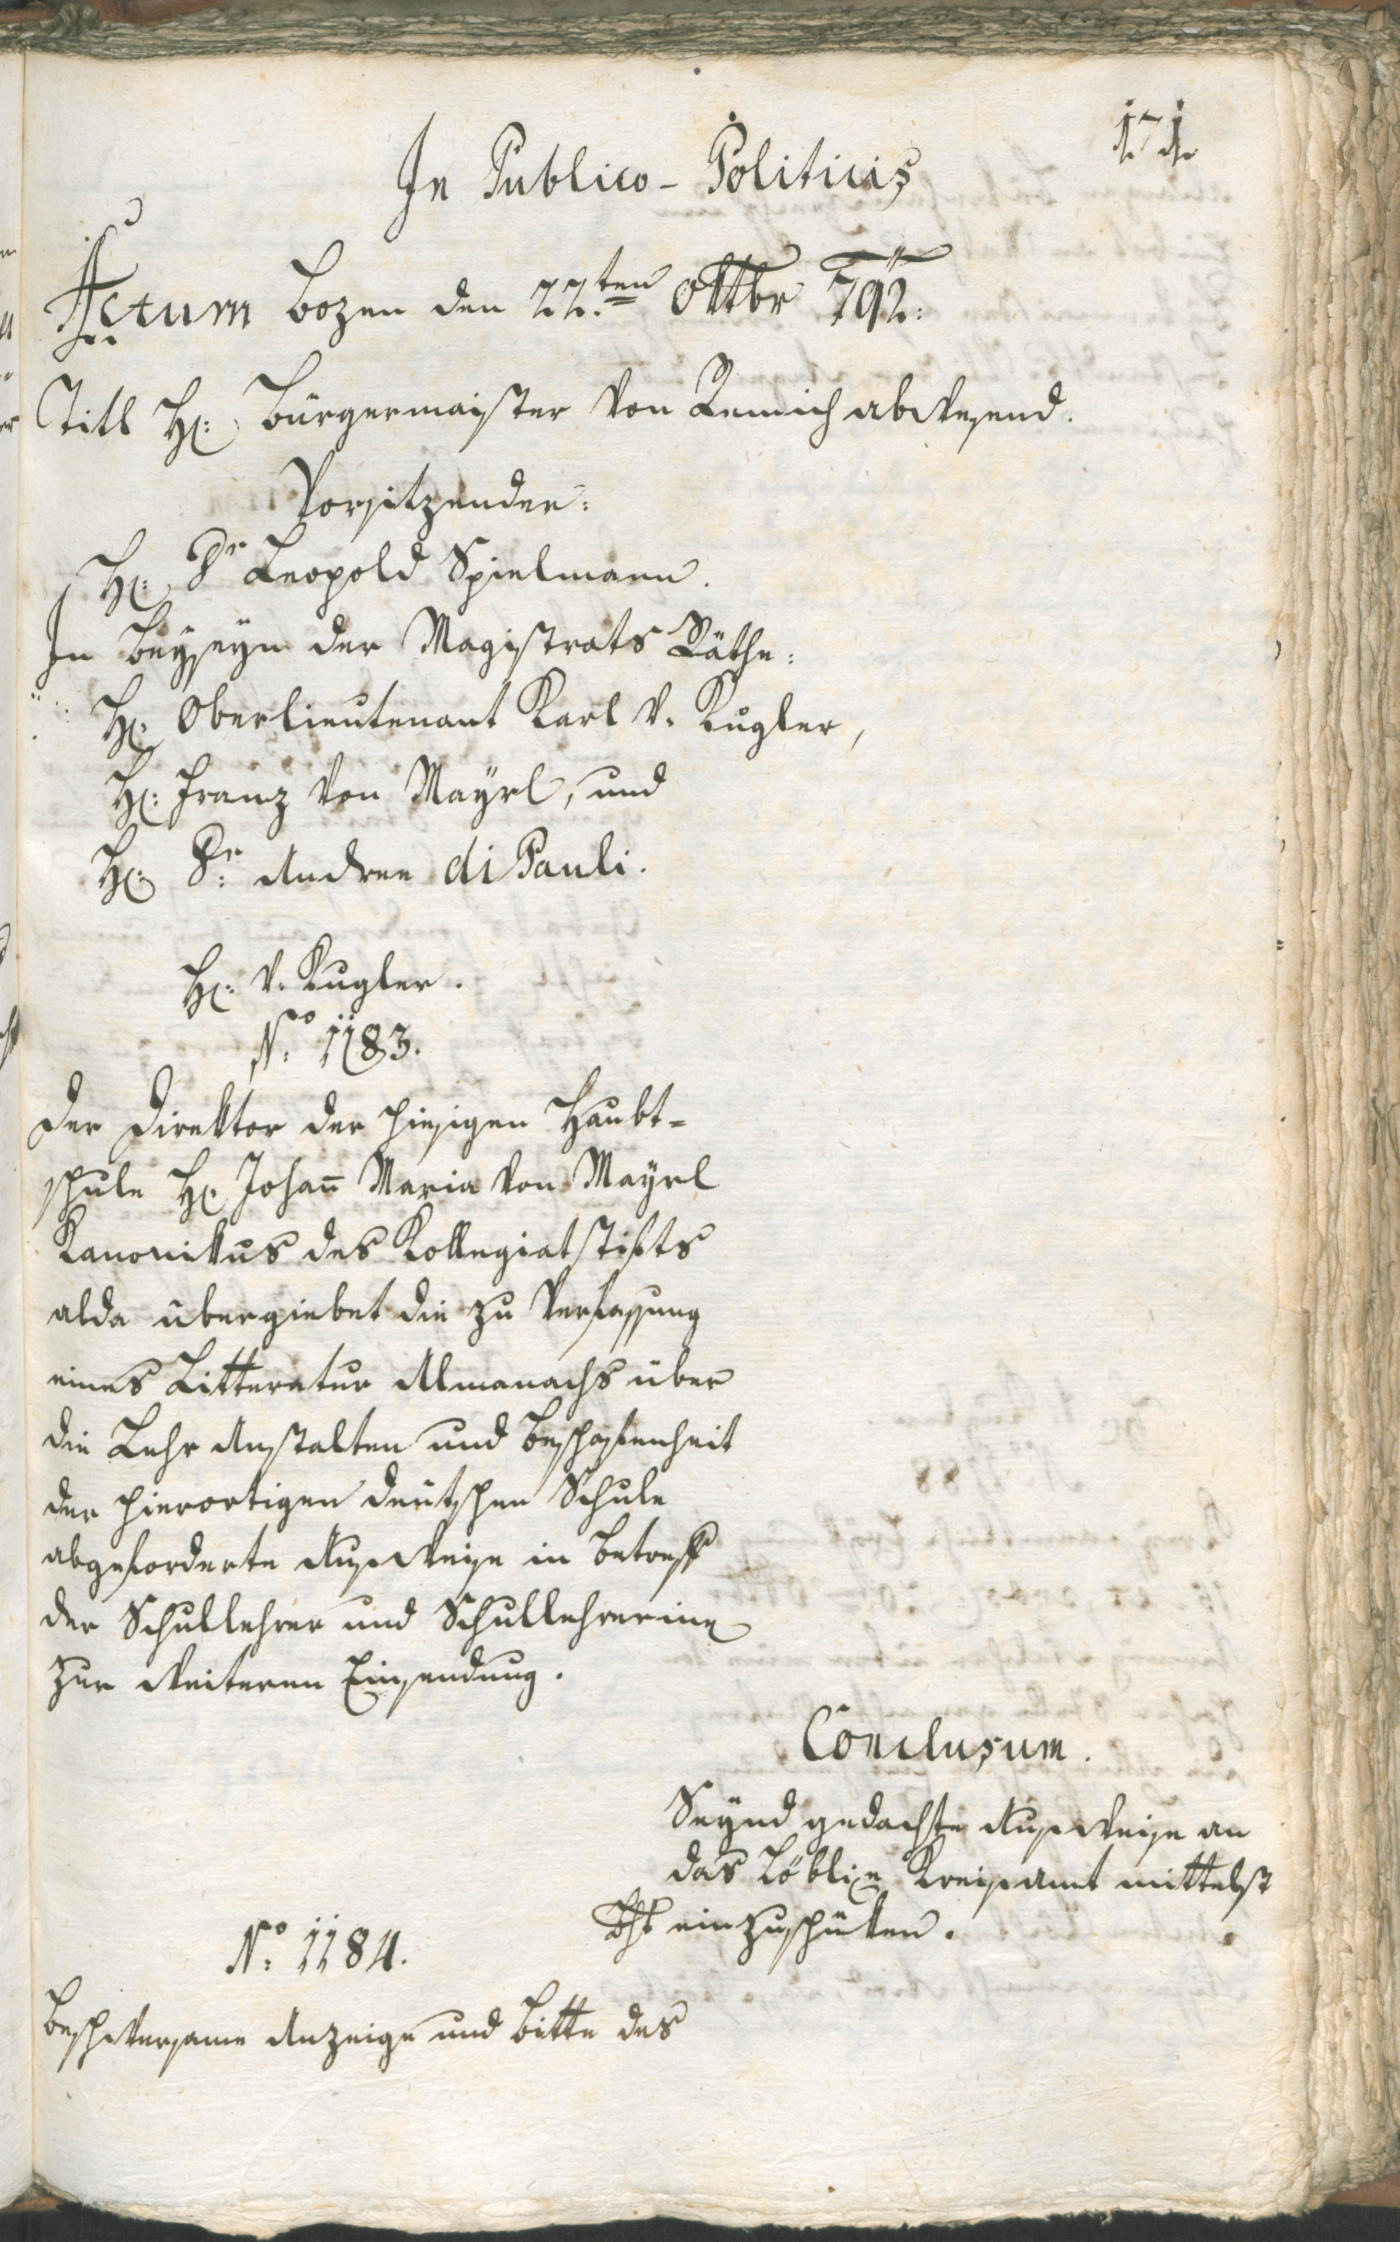 171.
In Publico-Politicis
Actum Bozen den 22.ten Oktbr 792:
Titl H: Bürgermaister von Remich abwesend.
Vorsitzender:
H: Dr Leopold Spielmann.
In Beyseyn der Magistrats Räthe:
H: Oberlieutenant Karl v. Kugler,
H: Franz von Mayrl, und
H: Dr: Andree di Pauli.
H: v. Kugler.
No: 1183.
Der Direktor der hiesigen Haubt=
schule H: Johan̅ Maria von Mayrl
Kanonikus des Kollegiatstifts
alda übergiebet die zu Verfassung
eines Litteratur Almanachs über
die Lehr Anstalten und Beschaffenheit
der hierortigen deutschen Schule
abgeforderte Ausweise in Betreff
der Schullehrer und Schullehrerinen
zur weiteren Einsendung.
Conclusum.
Seynd gedachte Ausweise an
das Löbliche Kreisamt mittelst
Bht einzuschüken.
No: 1184.
Beschwersame Anzeige und Bitte des